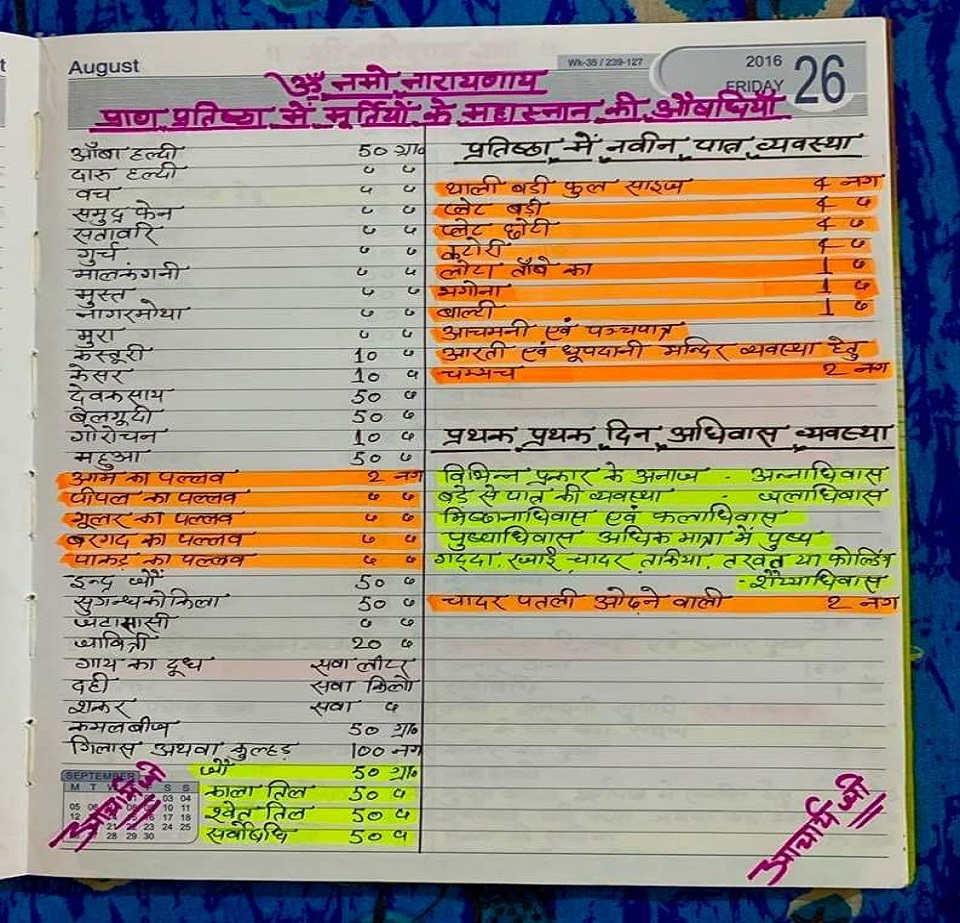 August
Wk-35 / 239-127
2016
FRIDAY 26
ॐ नमो नारायणाय
प्राण प्रतिष्ठा में मूर्तियों के महास्नान की औषधियाँ
आँबा हल्दी 50 ग्रा॰
दारु हल्दी " "
वच " "
समुद्र फेन " "
सतावरि " "
गुर्च " "
मालकंगनी " "
मुस्त " "
नागरमोथा " "
मुरा " "
कस्तूरी 10 "
केसर 10 "
देवकसाय 50 "
बेलगूदी 50 "
गोरोचन 10 "
महुआ 50 "
आम का पल्लव 2 नग
पीपल का पल्लव " "
गूलर का पल्लव " "
बरगद का पल्लव " "
पाकड़ का पल्लव " "
इन्द्र ज्यौं 50 "
सुगन्धकोकिला 50 "
जटामासी " "
जावित्री 20 "
गाय का दूध सवा लीटर
दही सवा किलो
शक्कर सवा "
कमलबीज 50 ग्रा॰
गिलास अथवा कुल्हड़ 100 नग
जौं 50 ग्रा॰
काला तिल 50 "
श्वेत तिल 50 "
सर्वोषधि 50 "
प्रतिष्ठा में नवीन पात्र व्यवस्था
थाली बडी फुल साइज 4 नग
प्लेट बडी 4 "
प्लेट छोटी 4 "
कटोरी 4 "
लोटा ताँबे का 1 "
भगोना 1 "
बाल्टी 1 "
आचमनी एवं पञ्चपात्र
आरती एवं धूपदानी मन्दिर व्यवस्था हेतु
चम्मच 2 नग
प्रथक प्रथक दिन अधिवास व्यवस्था
विभिन्न प्रकार के अनाज - अन्नाधिवास
बडे से पात्र की व्यवस्था - जलाधिवास
मिष्ठानाधिवास एवं फलाधिवास
पुष्पाधिवास अधिक मात्रा में पुष्प
गद्दा, रजाई, चादर, तकिया, तखत या फोल्डिंग
- शैय्याधिवास
चादर पतली ओढने वाली 2 नग
SEPTEMBER
M T W S S
03 04
05 06 10 11
12 17 18
21 22 23 24 25
28 29 30
आचार्य जी
आचार्य जी